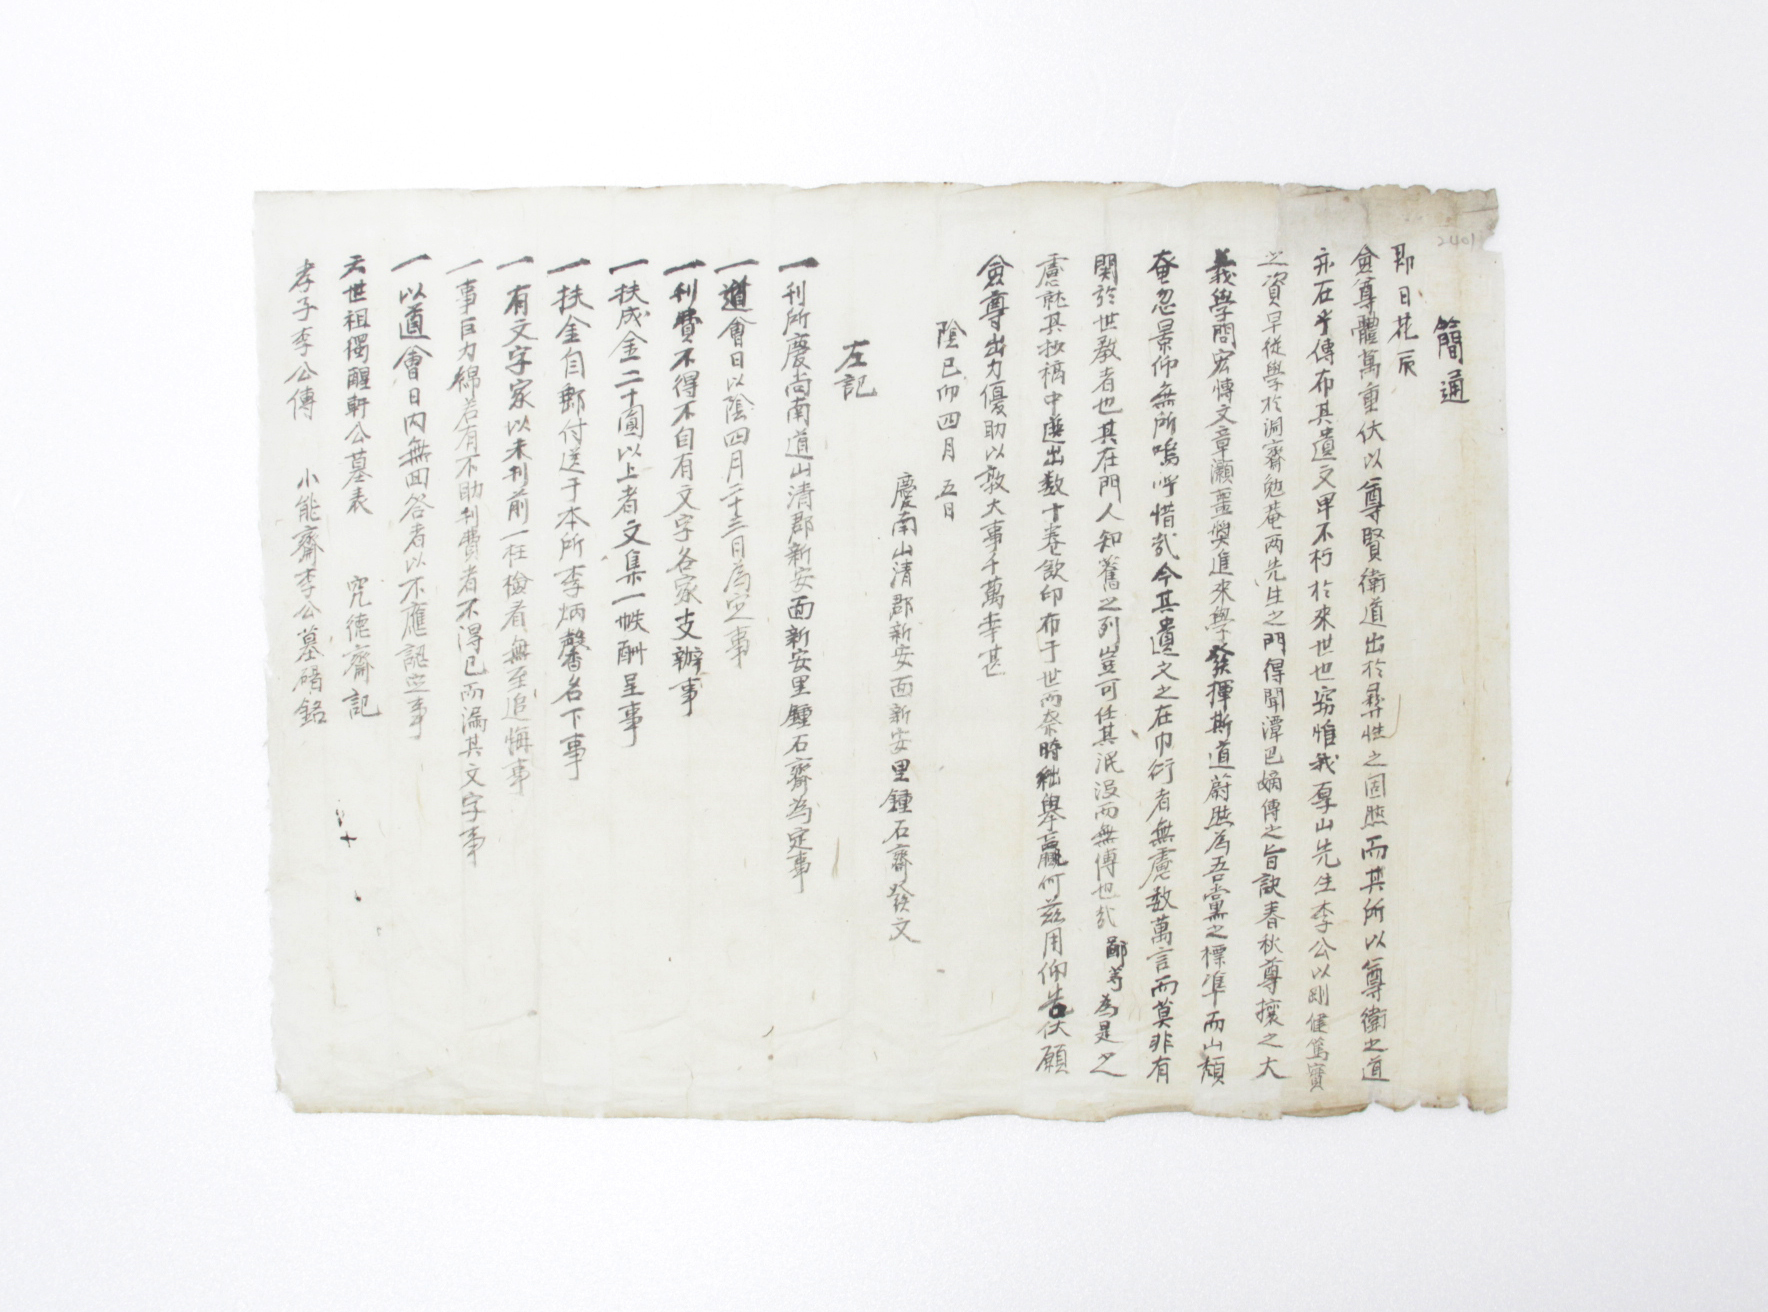 2401
簡通
即日花辰
僉尊體萬重伏以尊賢衛道出於彝性之固然而其所以尊衛之道
亦在乎傳布其遺文畀不朽於來世也窃惟我厚山先生李公以剛健篤實
之資早從學於洞齋勉菴兩先生之門得聞潭巴嫡傳之旨訣春秋尊攘之大
義學問宏博文章灝噩奬進來學發揮斯道蔚然爲吾黨之標準而山頹
奄忽景仰無所嗚呼惜哉今其遺文之在巾衍者無慮数萬言而莫非有
関於世教者也其在門人知舊之列豈可任其泯沒而無傳也哉鄙等為是之
慮就其抄稿中選出数十卷欲印布于世而奈時絀舉贏何玆用仰告伏願
僉尊出力優助以敦大事千萬幸甚
陰己卯四月五日
慶南山清郡新安面新安里鍾石齋發文
左記
一刊所慶尚南道山清郡新安面新安里鍾石齋為定事
一道會日以陰四月二十三日為定事
一刊費不得不自有文字各家支辦事
一扶成金二十圓以上者文集一帙酬呈事
一扶金自郵付送于本所李炳馨名下事
一有文字家以未刊前一枉檢看無至追悔事
一事巨力綿若有不助刊費者不得已而漏其文字事
一以道會日内無回答者以不應認定事
六世祖獨醒軒公墓表 究德齋記
孝子李公傳 小能齋李公墓碣銘